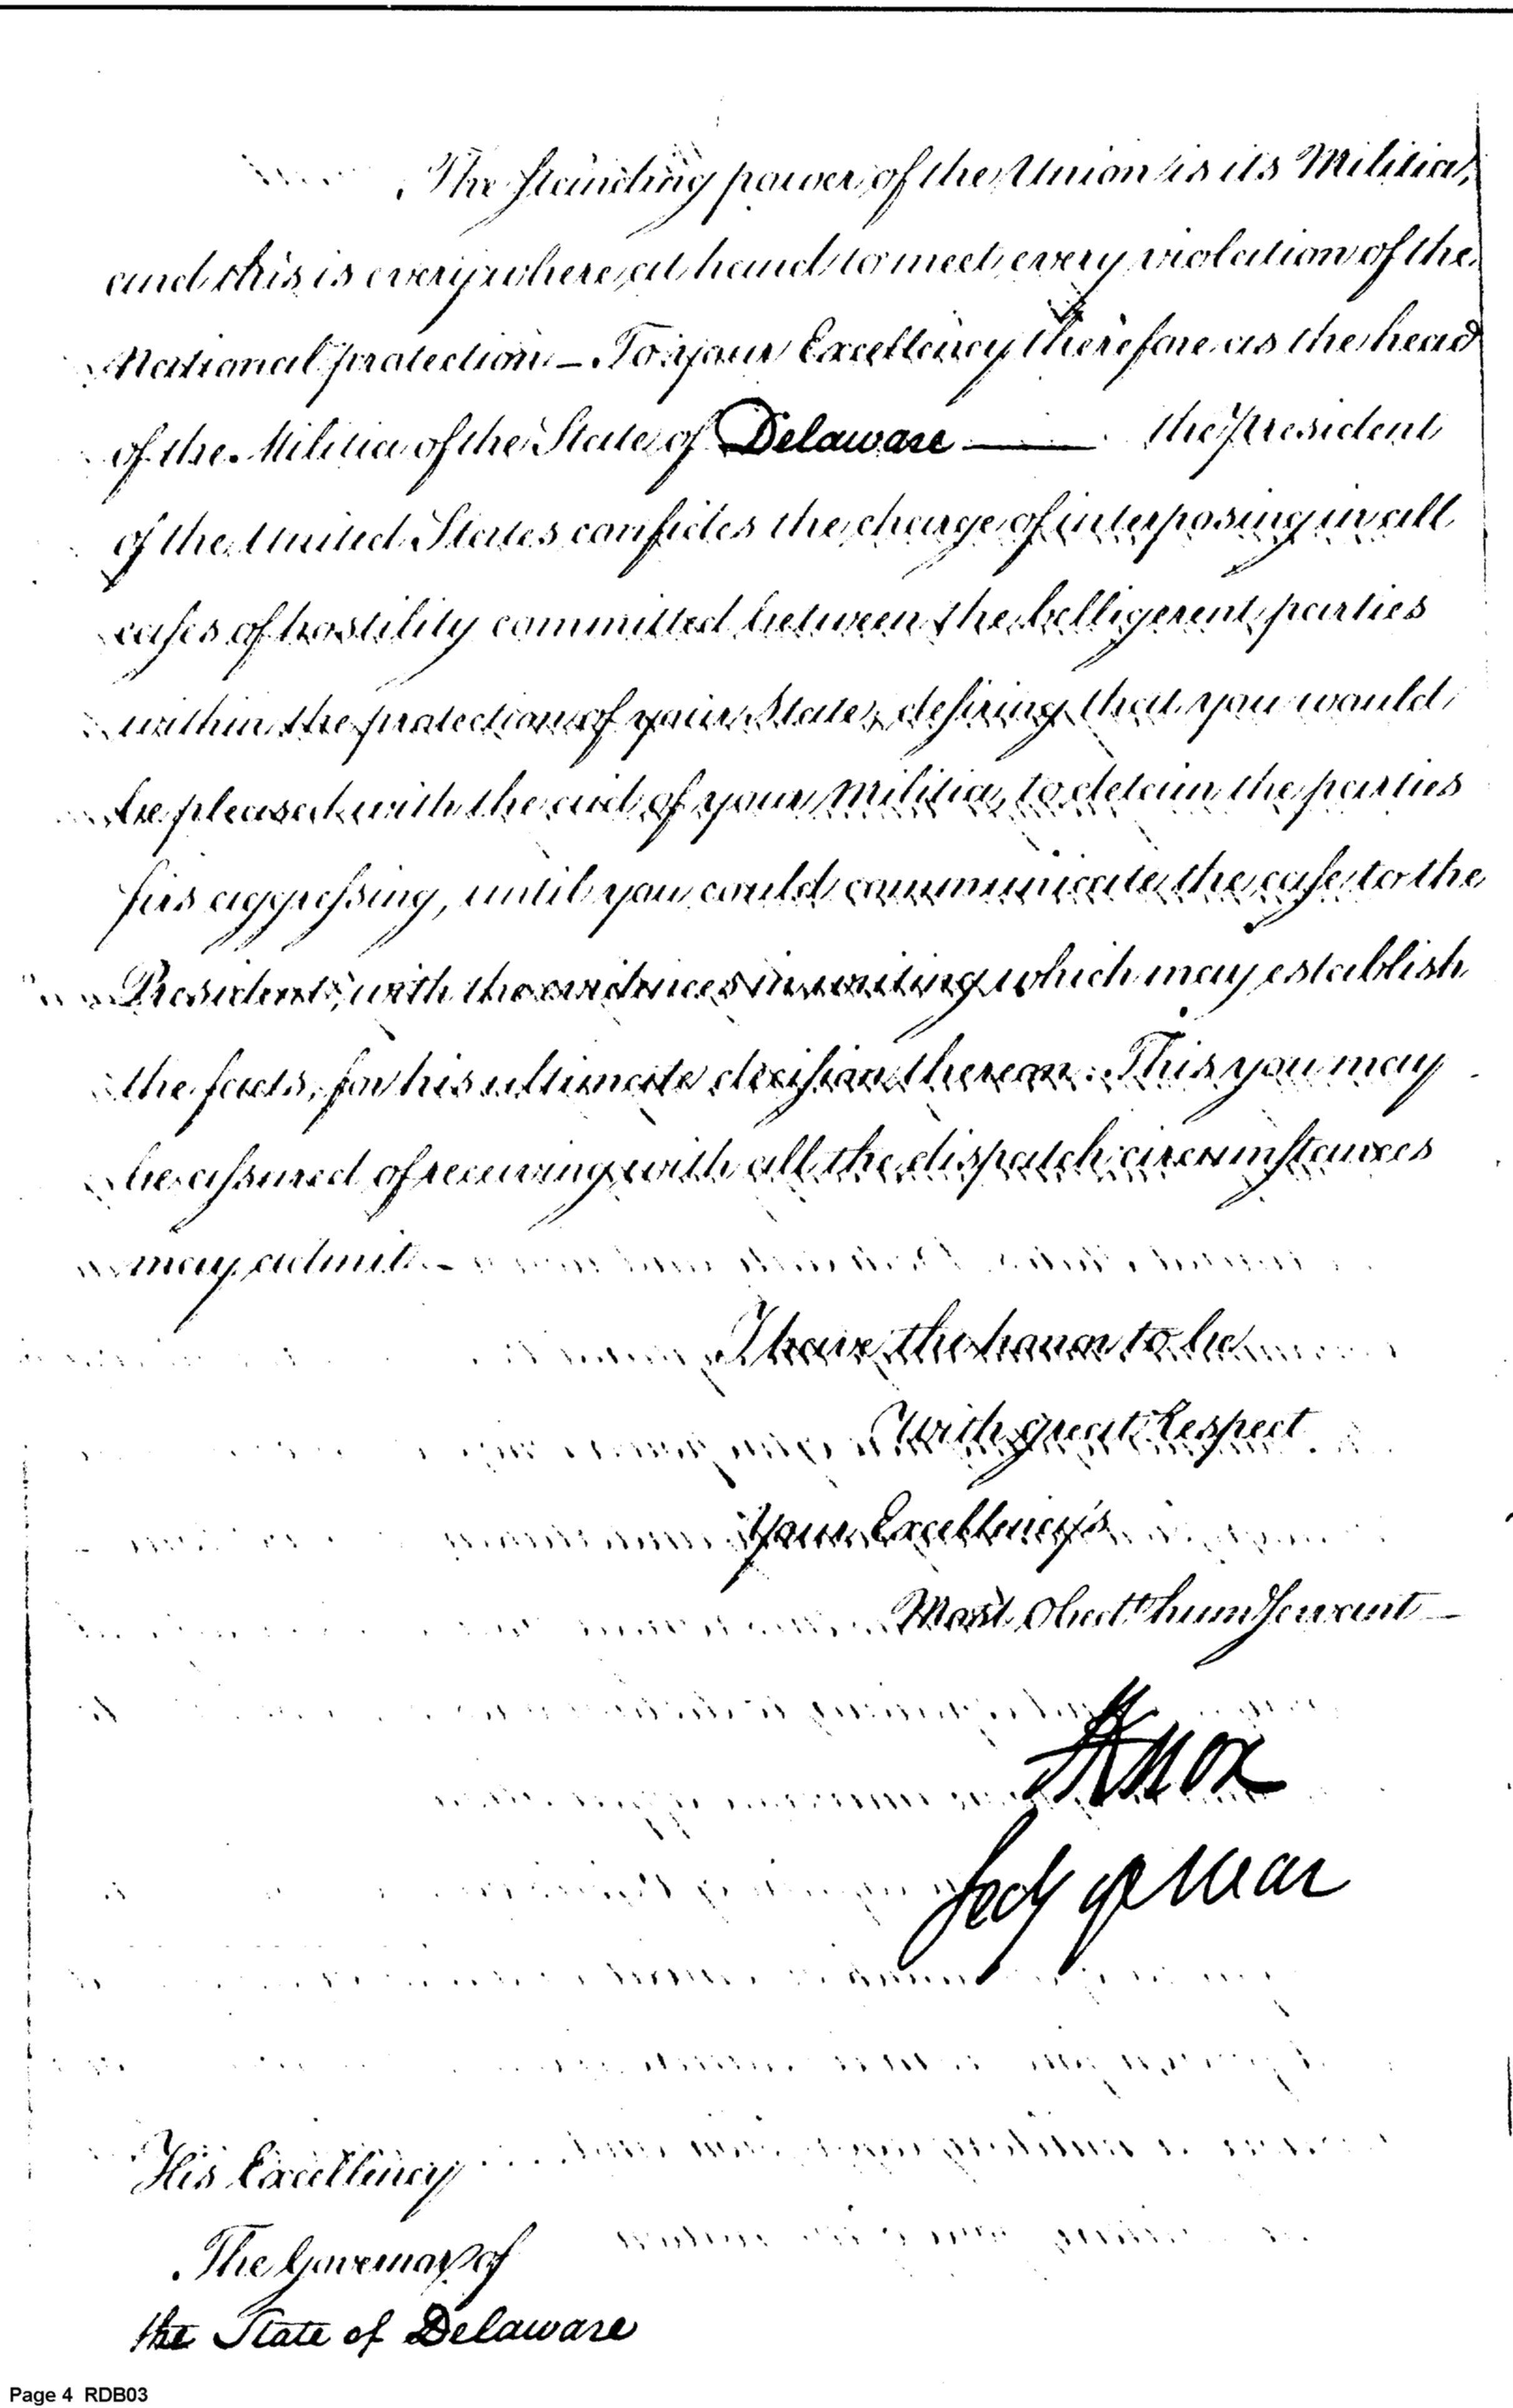 The standing power of the Union is its Militia,
and this is everywhere at hand to meet every violation of the
National protection — To your Excellency therefore as the head
of the Militia of the State of Delaware —— the President
of the United States confides the charge of interposing in all
cases of hostility committed between the belligerent parties
within the protection of your State, desiring that you would
be pleased with the aid of your Militia, to detain the parties
first aggressing, until you could communicate the case to the
President, with the evidences in writing which may establish
the facts, for his ultimate decision thereon. This you may
be assured of receiving with all the dispatch circumstances
may admit. —
I have the honor to be
with great Respect
Your Excellency's
Most Obedt hum Servant —
HKnox
Secy of War
His Excellency
The Governor of
the State of Delaware
Page 4 RDB03